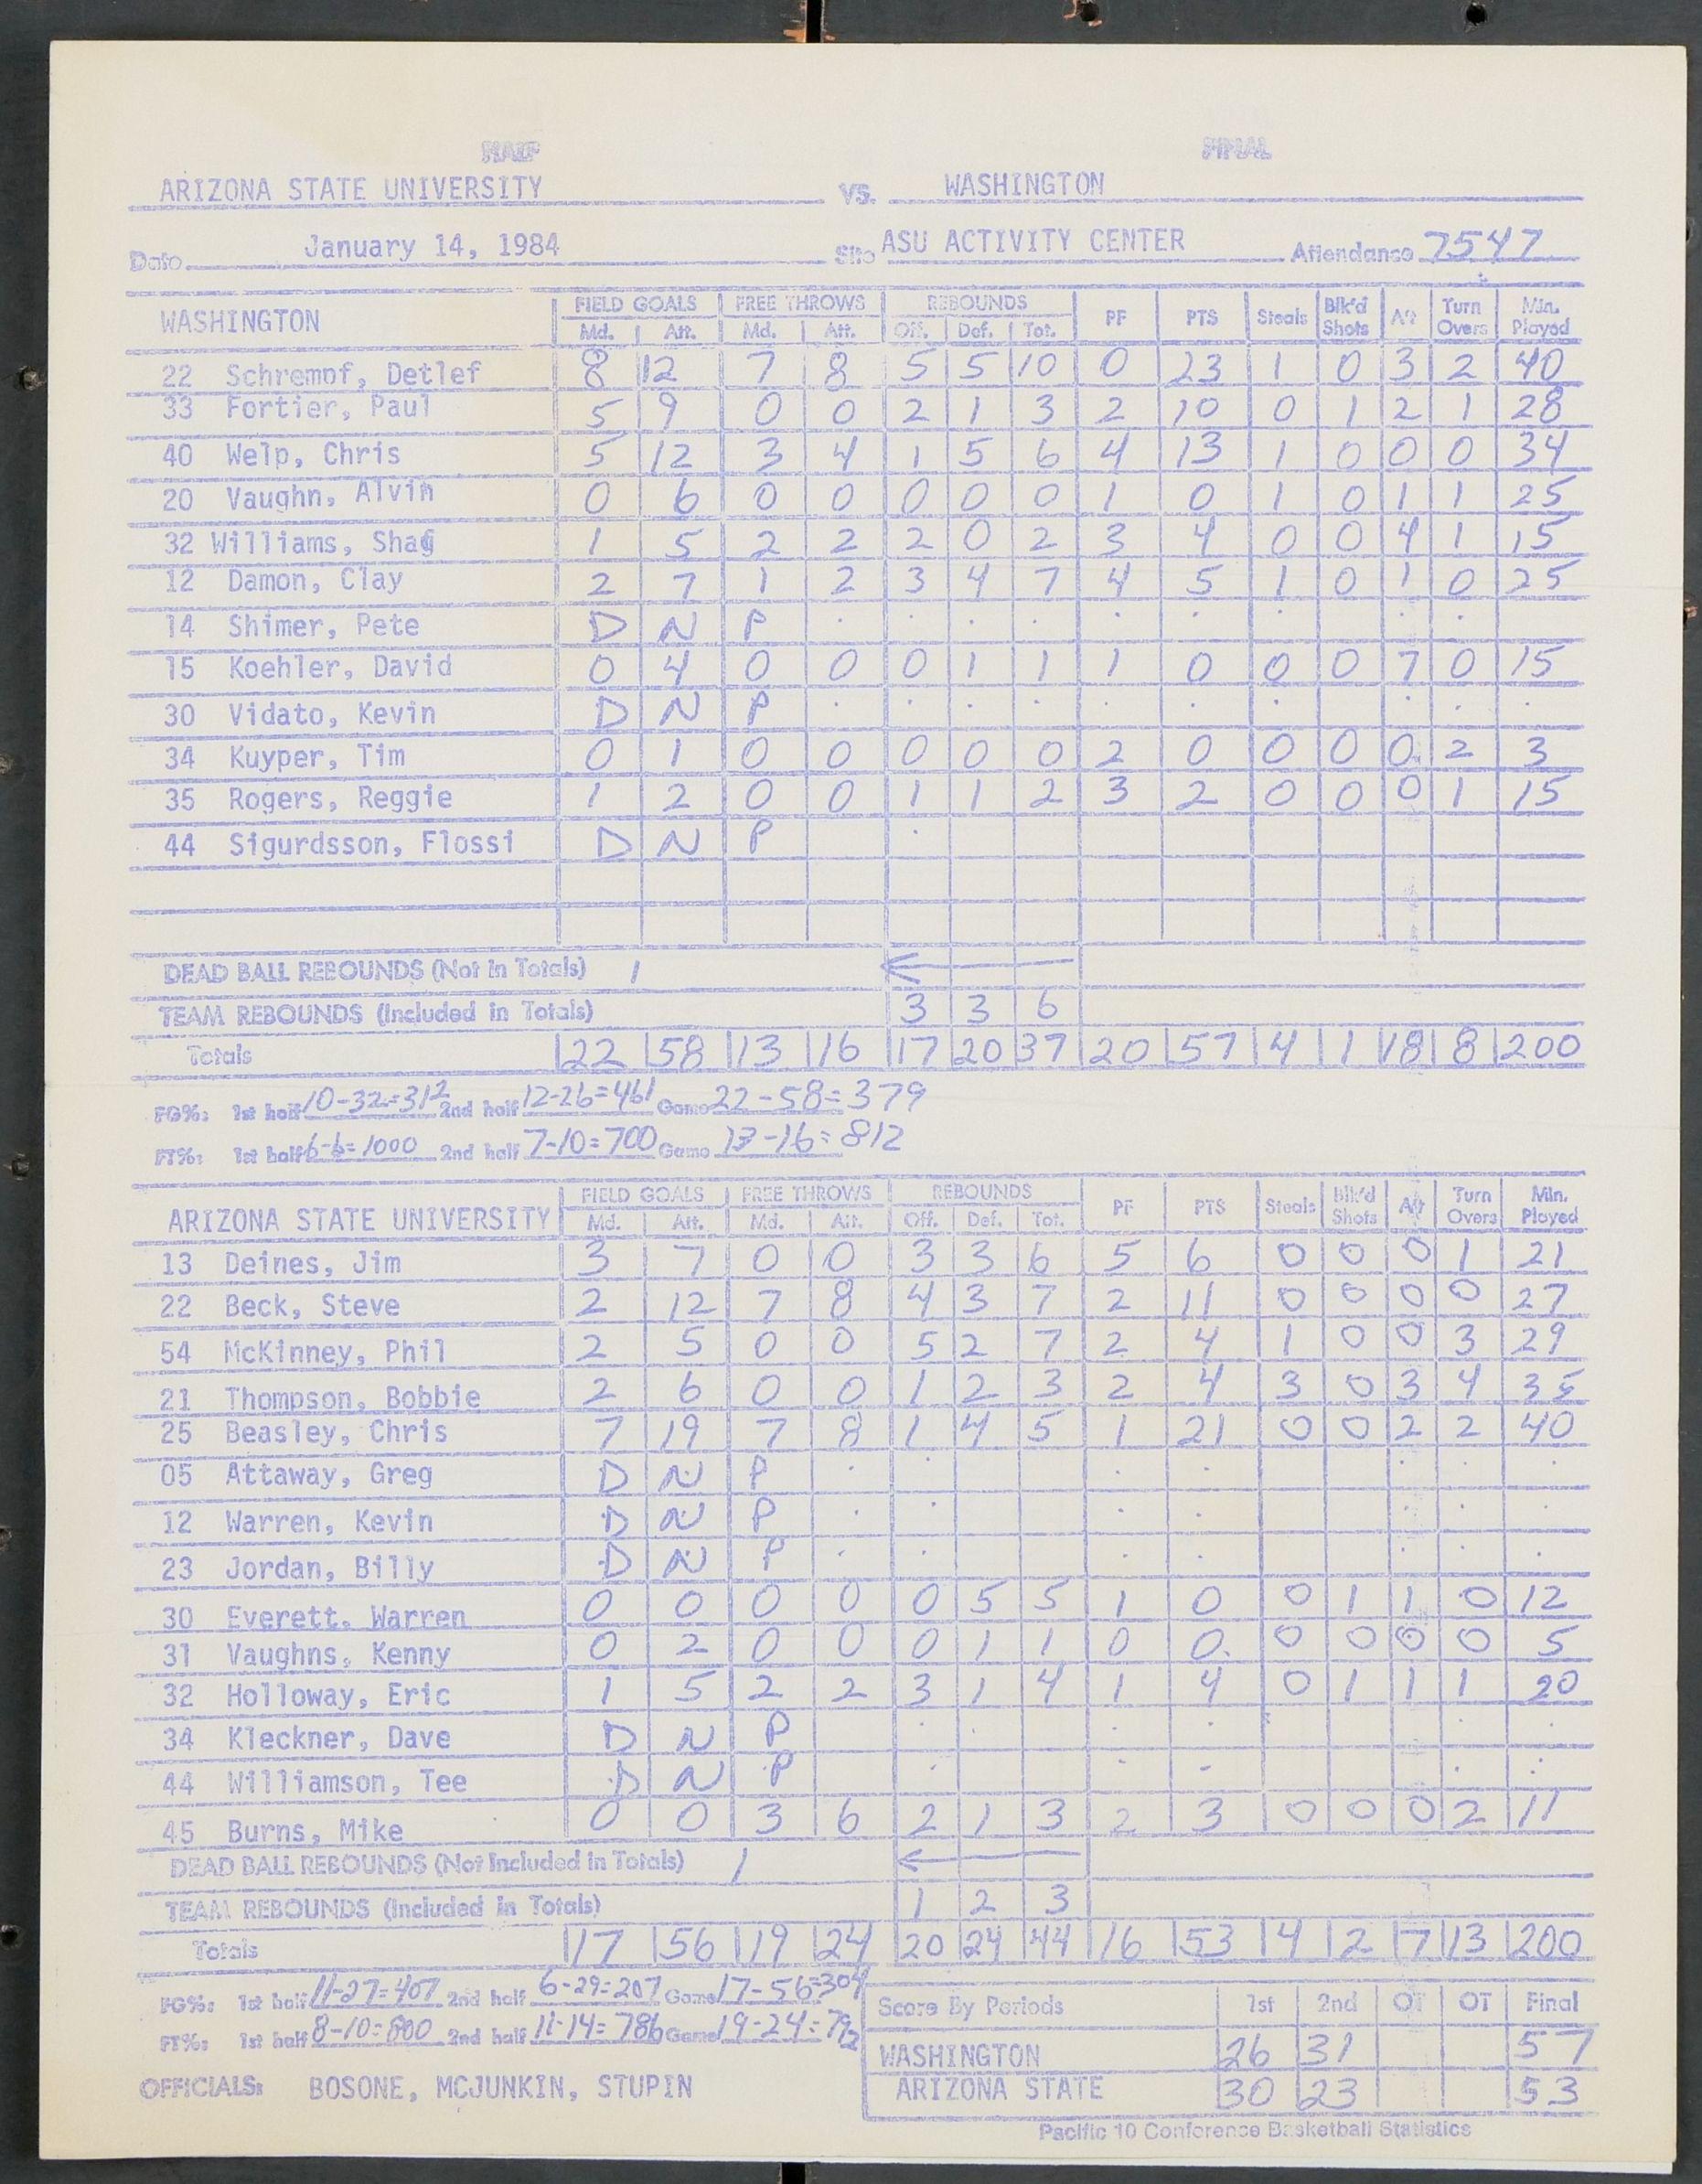 HALF FINAL
ARIZONA STATE UNIVERSITY VS. WASHINGTON
Date January 14, 1984 Site ASU ACTIVITY CENTER Attendance 7547
FIELD GOALS FREE THROWS REBOUNDS PF PTS Steals Blk'd Shots Turn Overs Min. Played
WASHINGTON Md. Att. Md. Att. Off. Def. Tot.
22 Schrempf, Detlef 8 12 7 8 5 5 10 0 23 1 0 3 2 40
33 Fortier, Paul 5 9 0 0 2 1 3 2 10 0 1 2 1 28
40 Welp, Chris 5 12 3 4 1 5 6 4 13 1 0 0 0 34
20 Vaughn, Alvin 0 6 0 0 0 0 0 1 0 1 0 1 1 25
32 Williams, Shag 1 5 2 2 2 0 2 3 4 0 0 4 1 15
12 Damon, Clay 2 7 1 2 3 4 7 4 5 1 0 1 0 25
14 Shimer, Pete D N P
15 Koehler, David 0 4 0 0 0 1 1 1 0 0 0 7 0 15
30 Vidato, Kevin D N P
34 Kuyper, Tim 0 1 0 0 0 0 0 2 0 0 0 0 2 3
35 Rogers, Reggie 1 2 0 0 1 1 2 3 2 0 0 0 1 15
44 Sigurdsson, Flossi D N P
DEAD BALL REBOUNDS (Not in Totals) 1
TEAM REBOUNDS (Included in Totals) 3 3 6
Totals 22 58 13 16 17 20 37 20 57 4 1 18 8 200
FG%: 1st half 10-32=312 2nd half 12-26=461 Game 22-58=379
FT%: 1st half 6-6=1000 2nd half 7-10=700 Game 13-16=812
FIELD GOALS FREE THROWS REBOUNDS PF PTS Steals Blk'd Shots Turn Overs Min. Played
ARIZONA STATE UNIVERSITY Md. Att. Md. Att. Off. Def. Tot.
13 Deines, Jim 3 7 0 0 3 3 6 5 6 0 0 0 1 21
22 Beck, Steve 2 12 7 8 4 3 7 2 11 0 0 0 0 27
54 McKinney, Phil 2 5 0 0 5 2 7 2 4 1 0 0 3 29
21 Thompson, Bobbie 2 6 0 0 1 2 3 2 4 3 0 3 4 35
25 Beasley, Chris 7 19 7 8 1 4 5 1 21 0 0 2 2 40
05 Attaway, Greg D N P
12 Warren, Kevin D N P
23 Jordan, Billy D N P
30 Everett, Warren 0 0 0 0 0 5 5 1 0 0 1 1 0 12
31 Vaughns, Kenny 0 2 0 0 0 1 1 0 0 0 0 0 0 5
32 Holloway, Eric 1 5 2 2 3 1 4 1 4 0 1 1 1 20
34 Kleckner, Dave D N P
44 Williamson, Tee D N P
45 Burns, Mike 0 0 3 6 2 1 3 2 3 0 0 0 2 11
DEAD BALL REBOUNDS (Not Included in Totals) 1
TEAM REBOUNDS (Included in Totals) 1 2 3
Totals 17 56 19 24 20 24 44 16 53 4 2 7 13 200
FG%: 1st half 11-27=407 2nd half 6-29=207 Game 17-56=304
FT%: 1st half 8-10=800 2nd half 11-14=786 Game 19-24=792
Score By Periods 1st 2nd OT OT Final
WASHINGTON 26 31 57
ARIZONA STATE 30 23 53
OFFICIALS: BOSONE, MCJUNKIN, STUPIN
Pacific 10 Conference Basketball Statistics